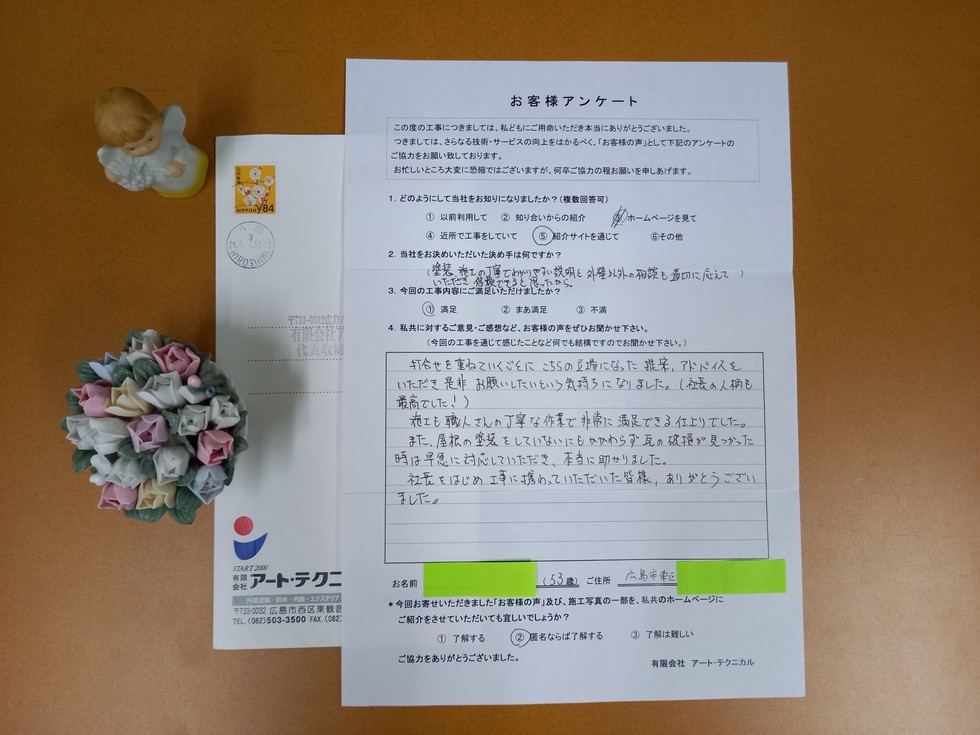 お客様アンケート
この度の工事につきましては、私どもにご用命いただき本当にありがとうございました。
つきましては、さらなる技術・サービスの向上をはかるべく、「お客様の声」として下記のアンケートの
ご協力をお願い致しております。
お忙しいところ大変に恐縮ではございますが、何卒ご協力の程お願いを申しあげます。
1．どのようにして当社をお知りになりましたか？（複数回答可）
① 以前利用して ② 知り合いからの紹介 ホームページを見て
④ 近所で工事をしていて ⑤紹介サイトを通じて ⑥その他
2．当社をお決めいただいた決め手は何ですか？
（塗装、施工の丁寧でわかりやすい説明と外壁以外の相談も適切に応えて ）
いただき 信頼できると思ったから。
3．今回の工事内容にご満足いただけましたか？
① 満足 ② まあ満足 ③ 不満
4．私共に対するご意見・ご感想など、お客様の声をぜひお聞かせ下さい。
（今回の工事を通じて感じたことなど何でも結構ですのでお聞かせ下さい。）
打合せを重ねていくごとに こちらの立場になった 提案、アドバイスを
いただき 是非 お願いしたいという気持ちになりました。（社長の人柄も
最高でした！）
施工も職人さんの丁寧な作業で非常に満足できる仕上りでした。
また、屋根の塗装をしていないにもかかわらず 瓦の破損が見つかった
時は早急に対応していただき、本当に助かりました。
社長をはじめ 工事に携わっていただいた皆様、ありがとうござい
ました。
お名前 （53歳） ご住所 広島市東区
＊今回お寄せいただきました「お客様の声」及び、施工写真の一部を、私共のホームページに
ご紹介をさせていただいても宜しいでしょうか？
① 了解する ②匿名ならば了解する ③ 了解は難しい
ご協力をありがとうございました。
有限会社 アート・テクニカル
日本郵便
NIPPON 84
HIROSHIMA
〒733-0032広
有限会社ア
代表取締
START 2000
有限会社 アート・テクニ
外壁塗装・防水・内装・エクステリア
〒733-0032 広島市西区東観音
TEL.(082)503-3500 FAX.(082)